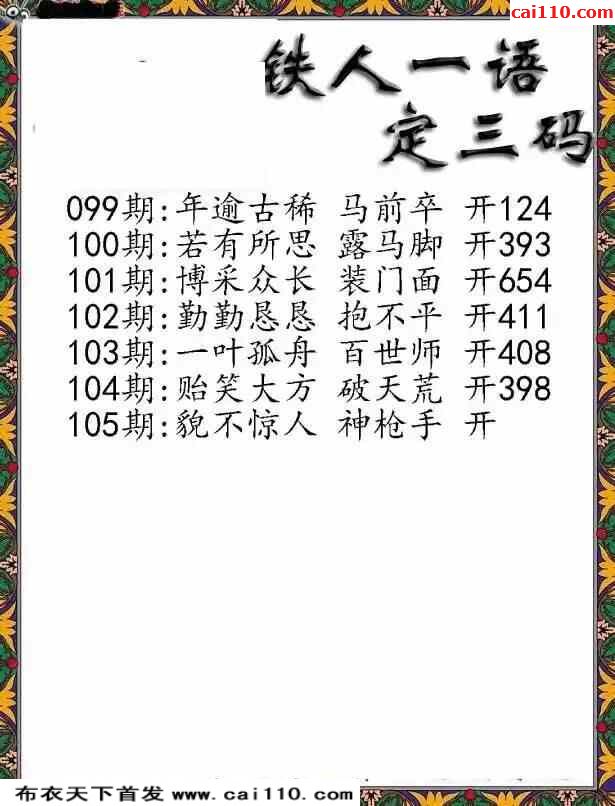 cai110.com
铁人一语
定三码
099期:年逾古稀 马前卒 开124
100期:若有所思 露马脚 开393
101期:博采众长 装门面 开654
102期:勤勤恳恳 抱不平 开411
103期:一叶孤舟 百世师 开408
104期:贻笑大方 破天荒 开398
105期:貌不惊人 神枪手 开
布衣天下首发 www.cai110.com